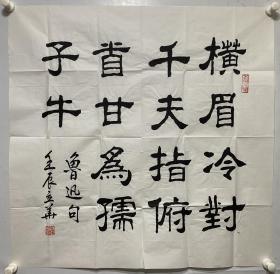 橫眉冷對
千夫指俯
首甘爲孺
子牛
魯迅句
壬辰